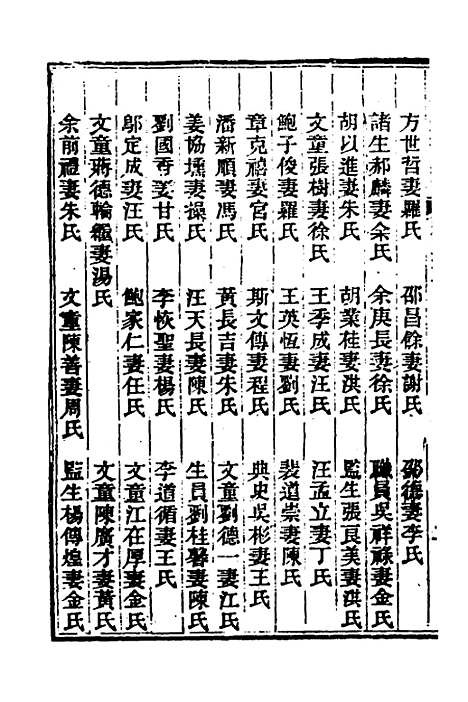 方世哲妻羅氏　邵昌餘妻謝氏　邵德妻李氏
諸生郝麟妻余氏　余庚長妻徐氏　職員吳祥祿妻金氏
胡以進妻朱氏　胡業桂妻洪氏　監生張良美妻洪氏
文童張樹妻徐氏　王季成妻汪氏　汪孟立妻丁氏
鮑子俊妻羅氏　王英恆妻劉氏　裴道崇妻陳氏
章克禧妻宮氏　斯文傳妻程氏　典史吳彬妻王氏
潘新順妻馮氏　黃長吉妻朱氏　文童劉德一妻江氏
姜協壎妻操氏　汪天長妻陳氏　生員劉桂馨妻陳氏
劉國香妻甘氏　李恢聖妻楊氏　李道循妻王氏
鄔定成妻汪氏　鮑家仁妻任氏　文童江在厚妻金氏
文童蔣德輪繼妻湯氏　文童陳廣才妻黃氏
余前禮妻朱氏　文童陳善妻周氏　監生楊傳煌妻金氏